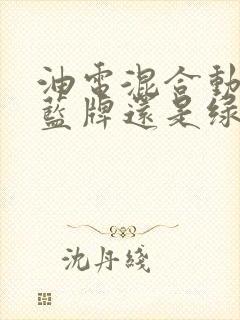 油電混合動
藍牌還是綠
沈丹綫